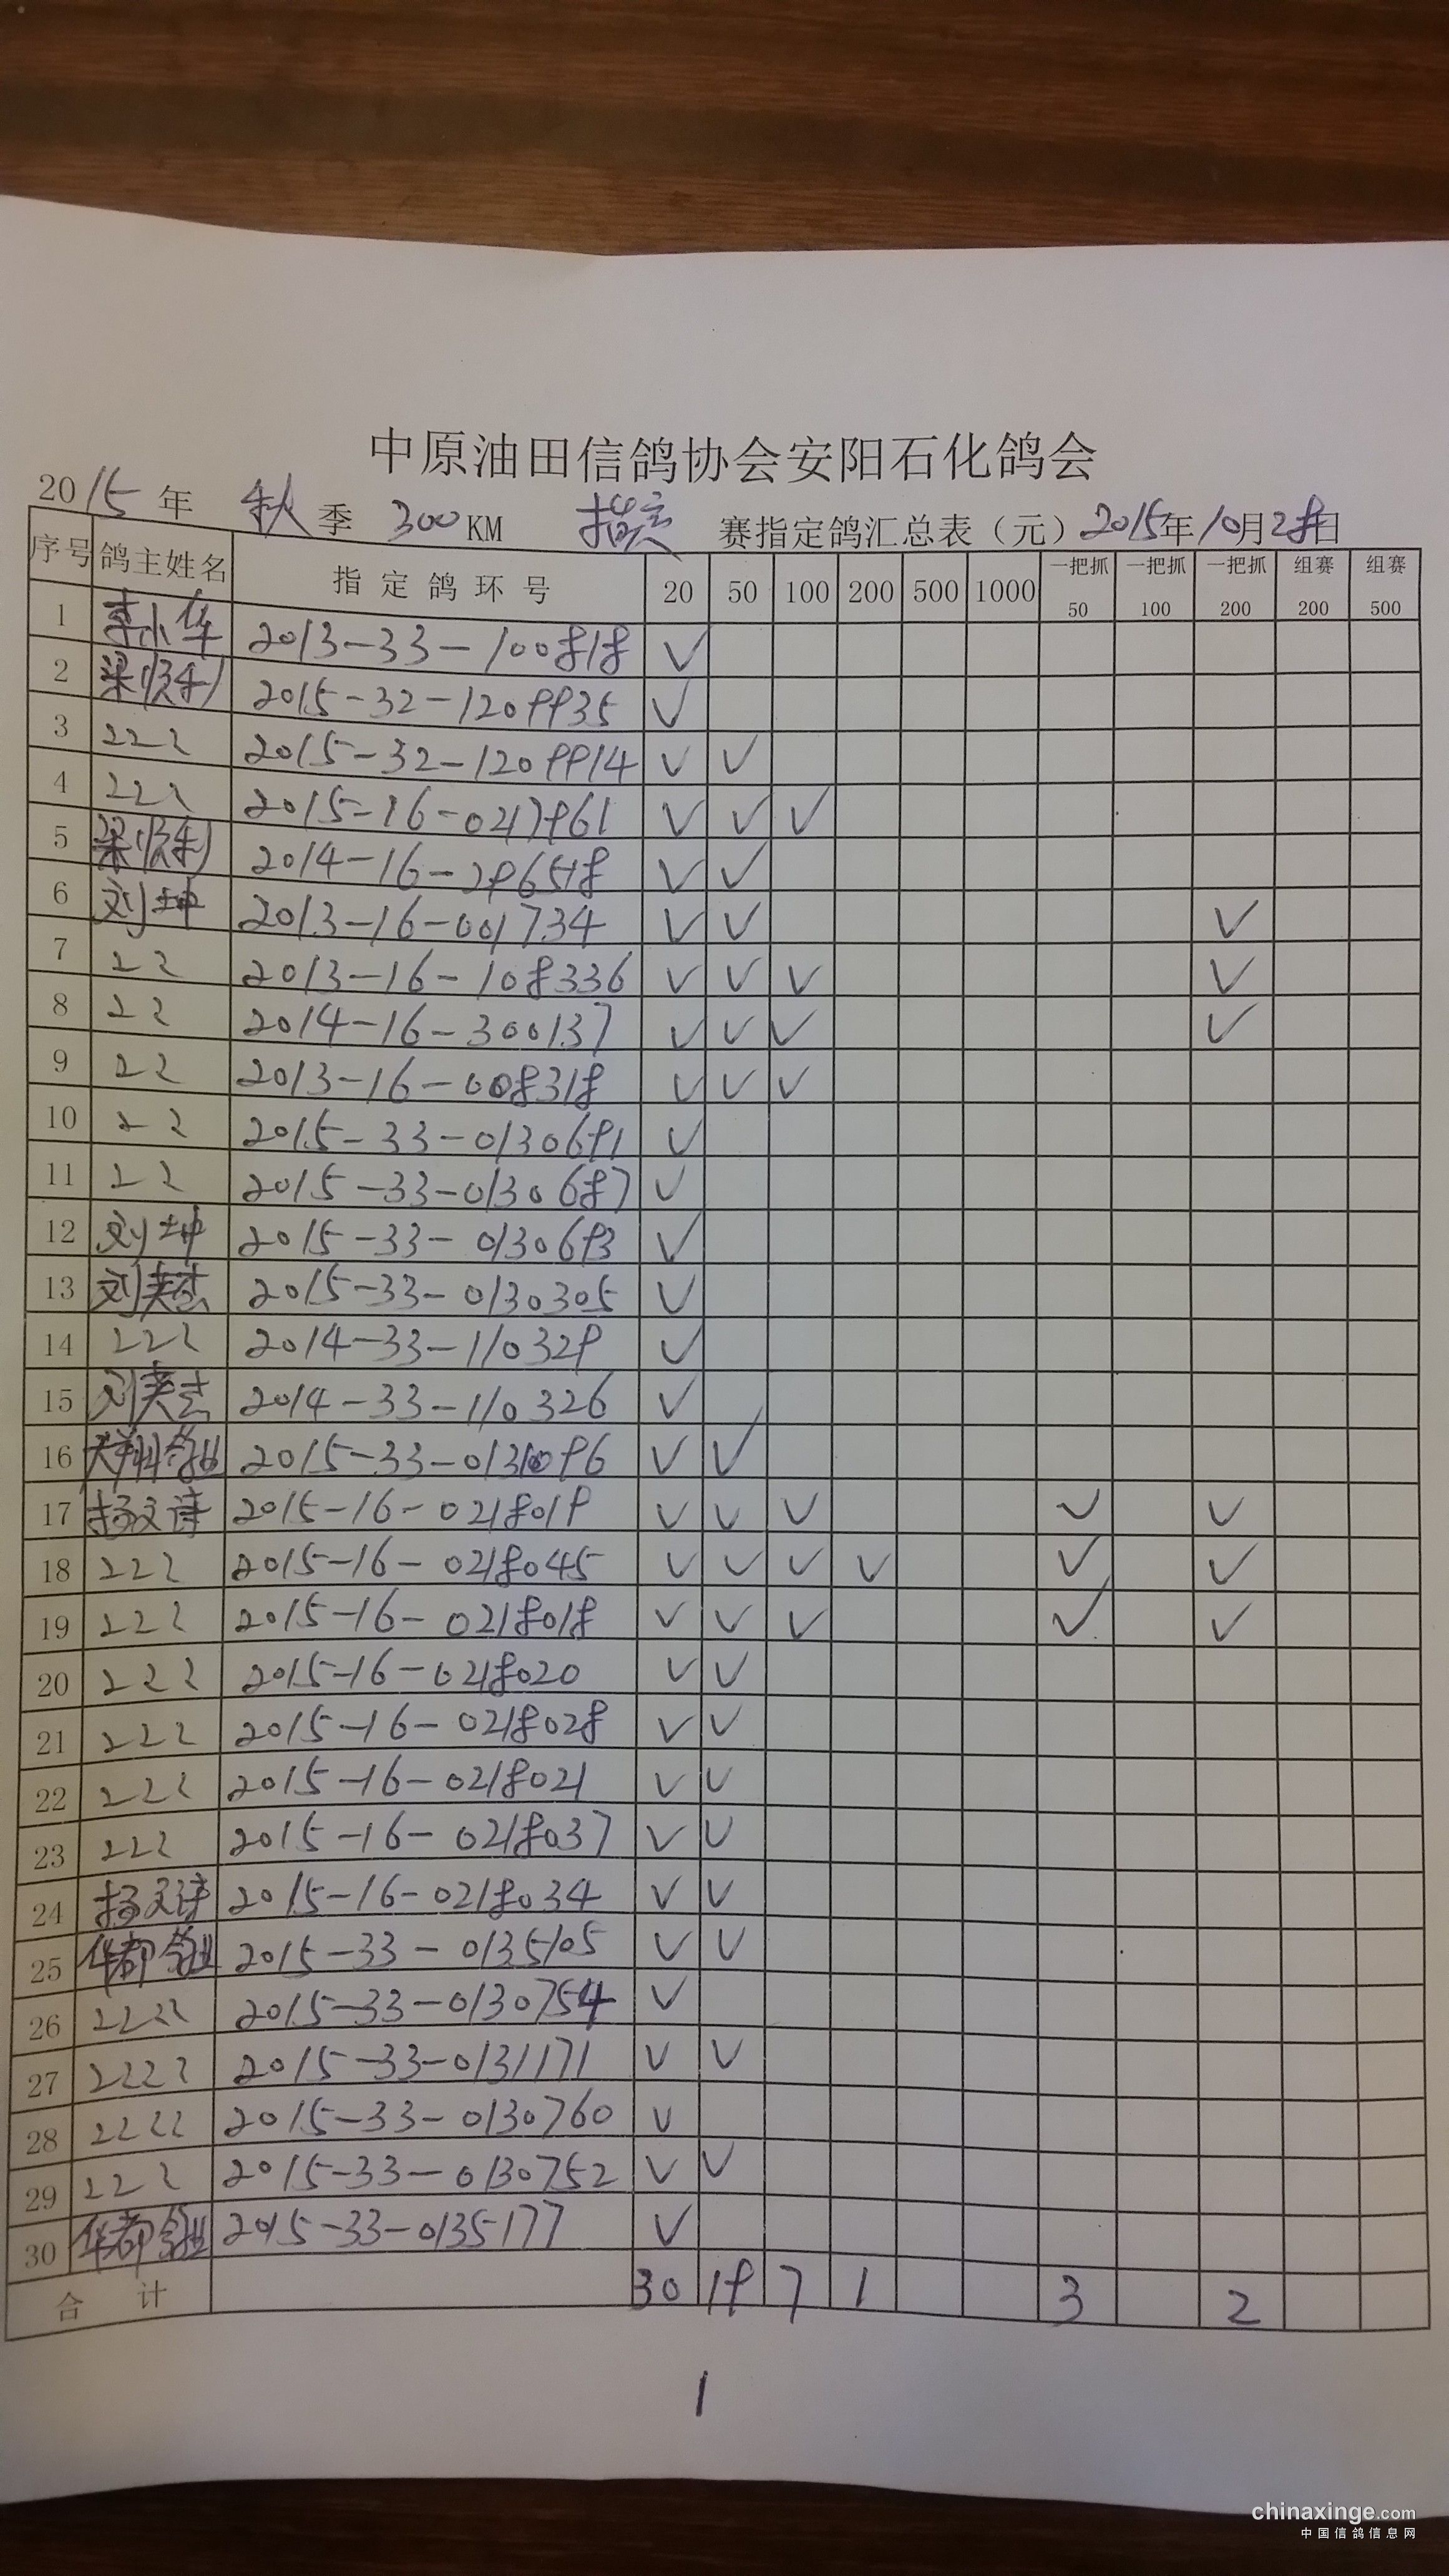 中原油田信鸽协会安阳石化鸽会
2015年 秋季 300KM 指定 赛指定鸽汇总表（元）2015年10月28日
序号 鸽主姓名 指定鸽环号 20 50 100 200 500 1000 一把抓50 一把抓100 一把抓200 组赛200 组赛500
1 李小华 2013-33-100818 √
2 梁顺利 2015-32-1209935 √
3 〃 2015-32-1209914 √ √
4 〃 2015-16-0217961 √ √ √
5 梁顺利 2014-16-296518 √ √
6 刘坤 2013-16-001734 √ √ √
7 〃 2013-16-108336 √ √ √ √
8 〃 2014-16-300137 √ √ √ √
9 〃 2013-16-008318 √ √ √
10 〃 2015-33-0130691 √
11 〃 2015-33-0130687 √
12 刘坤 2015-33-0130693 √
13 刘英杰 2015-33-0130305 √
14 〃 2014-33-110329 √
15 刘英杰 2014-33-110326 √
16 天翔鸽业 √ √
17 杨文诗 2015-16-0218019 √ √ √ √ √
18 〃 2015-16-0218045 √ √ √ √ √ √
19 〃 2015-16-0218018 √ √ √ √ √
20 〃 2015-16-0218020 √ √
21 〃 2015-16-0218028 √ √
22 〃 2015-16-0218021 √ √
23 〃 2015-16-0218037 √ √
24 杨文诗 2015-16-0218034 √ √
25 华都鸽业 2015-33-0135105 √ √
26 〃 2015-33-0130754 √
27 〃 2015-33-0131171 √ √
28 〃 2015-33-0130760 √
29 〃 2015-33-0130752 √ √
30 华都鸽业 2015-33-0135177 √
合计 30 19 7 1 3 2
1
chinaxinge.com
中国信鸽信息网